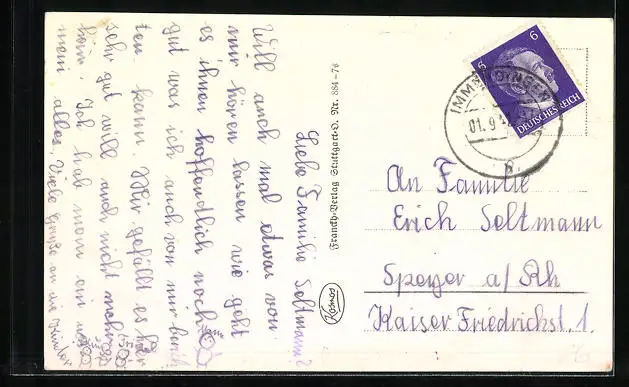 Liebe Familie Soltmann!
Will auch mal etwas von
mir hören lassen wie geht
es ihnen hoffendlich noch
gut was ich auch von mir berich
ten kann. Mir gefällt es hier
sehr gut will auch nicht mehr
heim. Ich hab mom ein
mein alles, Viele Grüße an die Kinder
Franckh-Verlag Stuttgart-O. Nr. 884-76
Kosmos
6
6
DEUTSCHES REICH
IMMENDINGEN
01.9.42
An Familie
Erich Soltmann
Speyer a/Rh
Kaiser Friedrichst. 1.